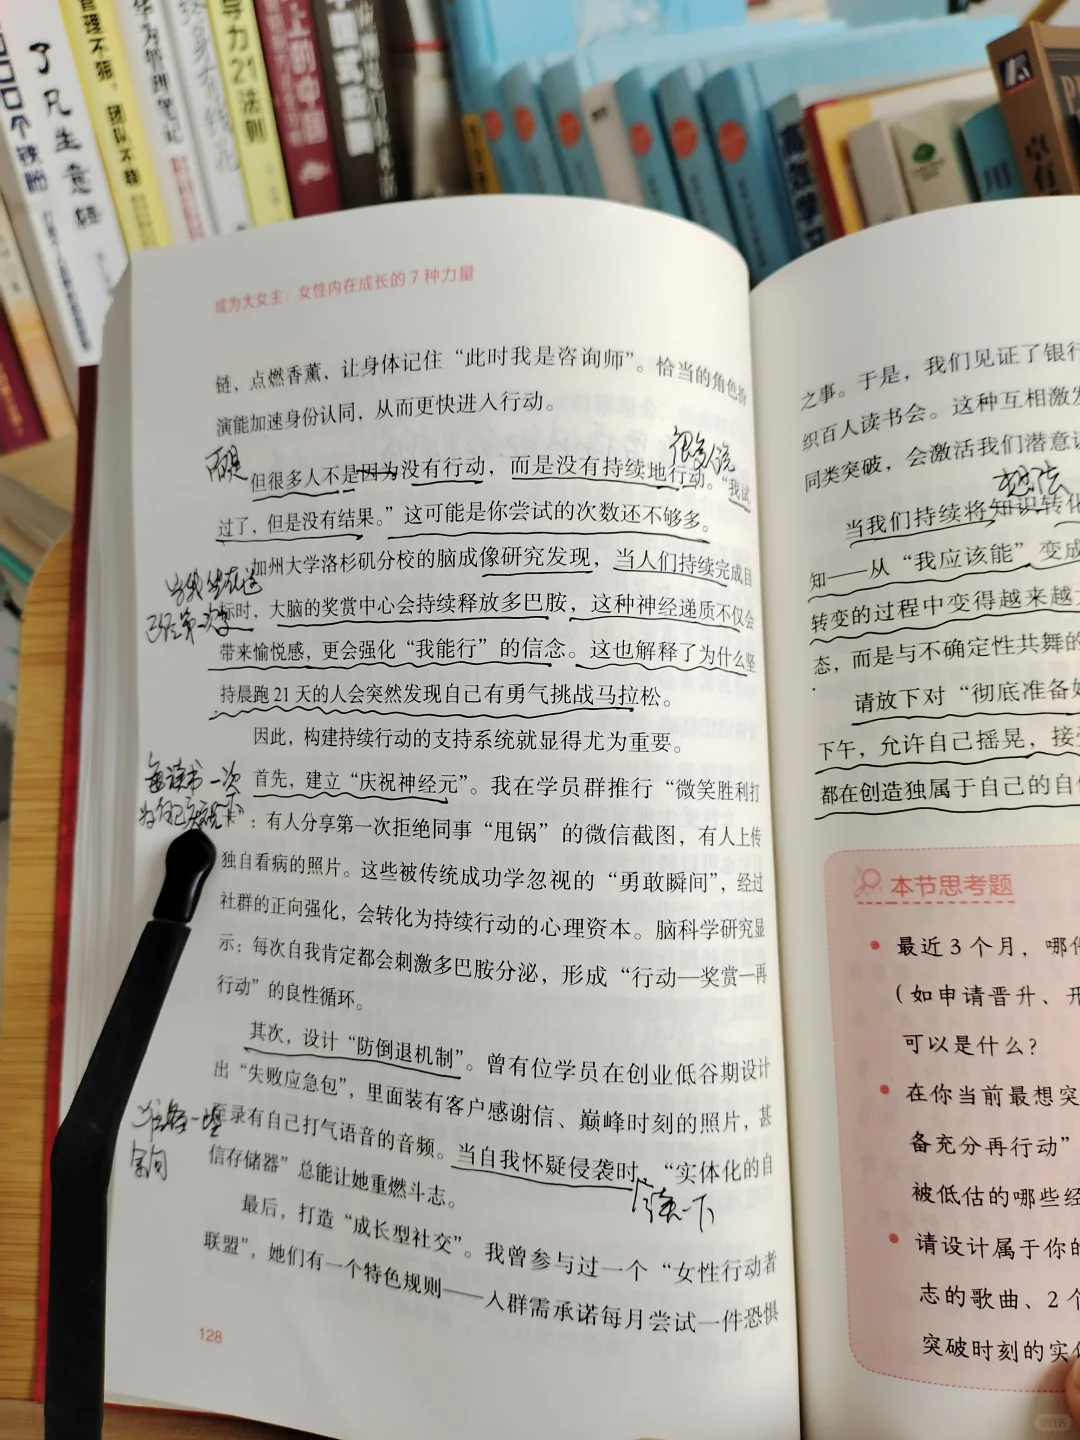 了凡生意经
管理不狠，团队不稳
华为管理笔记
导力21法则
上的中国
高效学习
卓有
用
成为大女主：女性内在成长的7种力量
链，点燃香薰，让身体记住“此时我是咨询师”。恰当的角色扮
演能加速身份认同，从而更快进入行动。
而是
很多人说
但很多人不是因为没有行动，而是没有持续地行动。“我试
过了，但是没有结果。”这可能是你尝试的次数还不够多。
加州大学洛杉矶分校的脑成像研究发现，当人们持续完成目
标时，大脑的奖赏中心会持续释放多巴胺，这种神经递质不仅会
带来愉悦感，更会强化“我能行”的信念。这也解释了为什么坚
持晨跑21天的人会突然发现自己有勇气挑战马拉松。
因此，构建持续行动的支持系统就显得尤为重要。
每读书一次
为自己
首先，建立“庆祝神经元”。我在学员群推行“微笑胜利打
卡”：有人分享第一次拒绝同事“甩锅”的微信截图，有人上传
独自看病的照片。这些被传统成功学忽视的“勇敢瞬间”，经过
社群的正向强化，会转化为持续行动的心理资本。脑科学研究显
示：每次自我肯定都会刺激多巴胺分泌，形成“行动—奖赏—再
行动”的良性循环。
其次，设计“防倒退机制”。曾有位学员在创业低谷期设计
出“失败应急包”，里面装有客户感谢信、巅峰时刻的照片，甚
至录有自己打气语音的音频。当自我怀疑侵袭时，“实体化的自
信存储器”总能让她重燃斗志。
准备一些
金句
读一下
最后，打造“成长型社交”。我曾参与过一个“女性行动者
联盟”，她们有一个特色规则——入群需承诺每月尝试一件恐惧
128
之事。于是，我们见证了银行
织百人读书会。这种互相激发
同类突破，会激活我们潜意识
想法
当我们持续将知识转化
知——从“我应该能”变成
转变的过程中变得越来越
态，而是与不确定性共舞的
请放下对“彻底准备好
下午，允许自己摇晃，接受
都在创造独属于自己的自信
本节思考题
最近3个月，哪件
（如申请晋升、开
可以是什么？
在你当前最想突
备充分再行动”
被低估的哪些经
请设计属于你的
志的歌曲、2个
突破时刻的实体
小红书